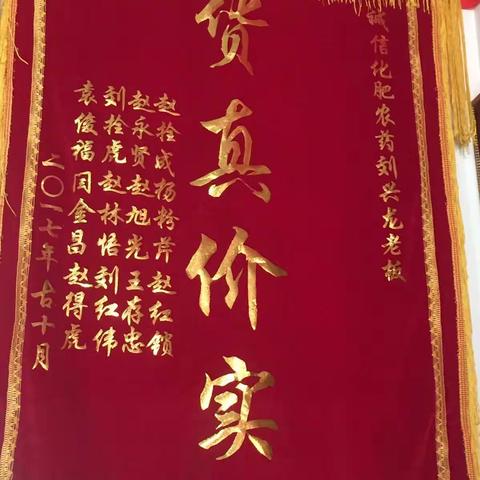 诚信化肥农药刘兴龙老板
货真价实
赵拴成杨粉芹赵红锁
赵永贤赵旭光王存忠
刘拴虎赵林悟刘红伟
袁俊福闫金昌赵得虎
二〇一七年古十月